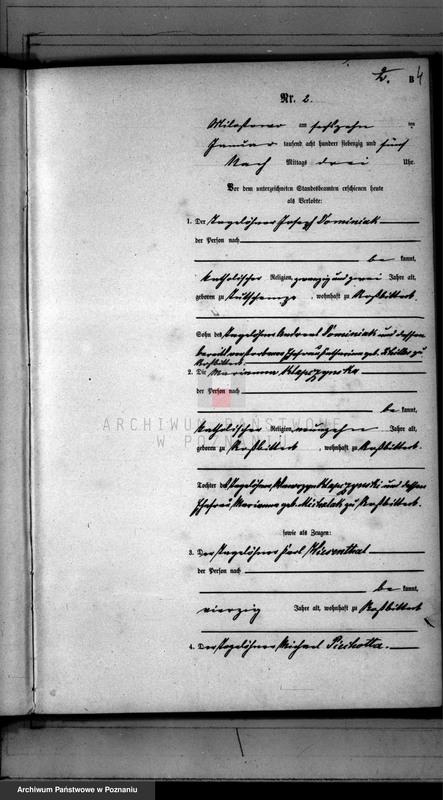 2. B 4
Nr. 2.
Milostowo am sechszehn ten
Januar tausend acht hundert siebenzig und fünf
Nach Mittags drei Uhr.
Vor dem unterzeichneten Standesbeamten erschienen heute
als Verlobte:
1. Der Tagelöhner Joseph Dominiak
der Person nach
be kannt,
katholischer Religion, zwanzig und zwei Jahre alt,
geboren zu , wohnhaft zu Rosbitterk
Sohn des Tagelöhners Andreas Dominiak und dessen
bereits verstorbenen Ehefrau Catharina geb. zu
Rosbitterk
2. Die Marianna Klapczynska
der Person nach
be kannt,
katholischer Religion, neunzehn Jahre alt,
geboren zu Rosbitterk , wohnhaft zu Rosbitterk.
Tochter des Tagelöhners Klapczynski und dessen
Ehefrau Marianna geb. Michalak zu Rosbitterk.
sowie als Zeugen:
3. Der Tagelöhner Carl Wiesenthal
der Person nach
be kannt,
vierzig Jahre alt, wohnhaft zu Rosbitterk
4. Der Tagelöhner Michael Piechotta.
ARCHIWUM PAŃSTWOWE
W POZNANIU
Archiwum Państwowe w Poznaniu